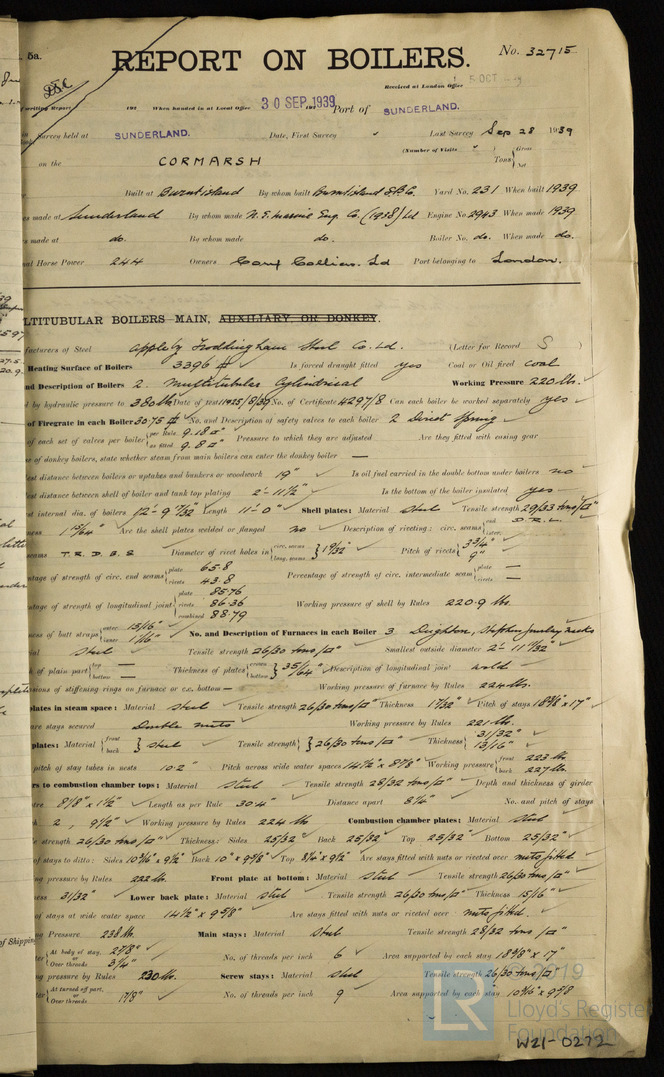 5a.
REPORT ON BOILERS.
No. 32715
Received at London Office
5 OCT
writing Report 193 When handed in at Local Office 30 SEP. 1939 Port of SUNDERLAND.
Survey held at SUNDERLAND. Date, First Survey " Last Survey Sep 28 1939
on the CORMARSH (Number of Visits " ) Tons { Gross Net
Built at Burntisland By whom built Burntisland S.B.C. Yard No. 231 When built 1939
s made at Sunderland By whom made N.E. Marine Eng. Co. (1938) Ltd Engine No. 2943 When made 1939
s made at do. By whom made do. Boiler No. do. When made do.
al Horse Power 244 Owners Cory Colliers. Ld Port belonging to London.
LTITUBULAR BOILERS—MAIN, AUXILIARY, OR DONKEY.
facturers of Steel Appleby Frodingham Steel Co. Ld. (Letter for Record S )
Heating Surface of Boilers 3396 Is forced draught fitted yes Coal or Oil fired coal
nd Description of Boilers 2. Multitubular Cylindrical Working Pressure 220 lbs.
d by hydraulic pressure to 380 lbs Date of test 25/8/39 No. of Certificate 4297/8 Can each boiler be worked separately yes
of Firegrate in each Boiler 50.75 No. and Description of safety valves to each boiler 2 Direct Spring
of each set of valves per boiler { per Rule 9.18 □" as fitted 9.8 □" Pressure to which they are adjusted Are they fitted with easing gear
se of donkey boilers, state whether steam from main boilers can enter the donkey boiler —
est distance between boilers or uptakes and bunkers or woodwork 19" Is oil fuel carried in the double bottom under boilers no
est distance between shell of boiler and tank top plating 2'-11½" Is the bottom of the boiler insulated yes
est internal dia. of boilers 12'-9 7/32" Length 11'-0" Shell plates: Material Steel Tensile strength 29/33 tons/□"
ness 1 15/64" Are the shell plates welded or flanged no Description of riveting: circ. seams { end D.R.L. inter.
seams T.R.D.B.S Diameter of rivet holes in { circ. seams long. seams } 1 9/32" Pitch of rivets { 3¾" 9"
ntage of strength of circ. end seams { plate 65.8 rivets 43.8 Percentage of strength of circ. intermediate seam { plate — rivets —
ntage of strength of longitudinal joint { plate 85.76 rivets 86.36 combined 88.79 Working pressure of shell by Rules 220.9 lbs.
ness of butt straps { outer 15/16" inner 1 1/16" No. and Description of Furnaces in each Boiler 3 Deighton,
ial Steel Tensile strength 26/30 tons/□" Smallest outside diameter 2'-11 11/32"
of plain part { top — bottom — Thickness of plates { crown bottom } 35/64" Description of longitudinal joint weld
sions of stiffening rings on furnace or c.c. bottom — Working pressure of furnace by Rules 224 lbs.
lates in steam space: Material Steel Tensile strength 26/30 tons/□" Thickness 1 1/32" Pitch of stays 18⅜" x 17"
are stays secured Double nuts Working pressure by Rules 221 lbs.
plates: Material { front back } Steel Tensile strength } 26/30 tons/□" Thickness { 31/32" 13/16"
pitch of stay tubes in nests 10.2" Pitch across wide water spaces 14½" x 8⅞" Working pressure { front 223 lbs back 227 lbs.
rs to combustion chamber tops: Material Steel Tensile strength 28/32 tons/□" Depth and thickness of girder
tre 8⅛" x 1½" Length as per Rule 30.4" Distance apart 8¼" No. and pitch of stays
h 2, 9½" Working pressure by Rules 224 lbs Combustion chamber plates: Material Steel
e strength 26/30 tons/□" Thickness: Sides 25/32" Back 25/32 Top 25/32" Bottom 25/32"
of stays to ditto: Sides 10 5/16" x 9½" Back 10" x 9⅝" Top 8¼" x 9½" Are stays fitted with nuts or riveted over nuts fitted
ng pressure by Rules 222 lbs Front plate at bottom: Material Steel Tensile strength 26/30 tons/□"
ness 31/32" Lower back plate: Material Steel Tensile strength 26/30 tons/□" Thickness 15/16"
of stays at wide water space 14½" x 9⅝" Are stays fitted with nuts or riveted over nuts fitted.
ng Pressure 238 lbs. Main stays: Material Steel Tensile strength 28/32 tons/□"
ter { At body of stay, 2⅞" Over threads 3¼" No. of threads per inch 6 Area supported by each stay 18⅜" x 17"
ng pressure by Rules 230 lbs. Screw stays: Material Steel Tensile strength 26/30 tons/□"
ter { At turned off part, or Over threads 1⅞" No. of threads per inch 9 Area supported by each stay 10 5/16" x 9⅝
of Shipping
LR
Lloyd's Register
Foundation
W21-0272